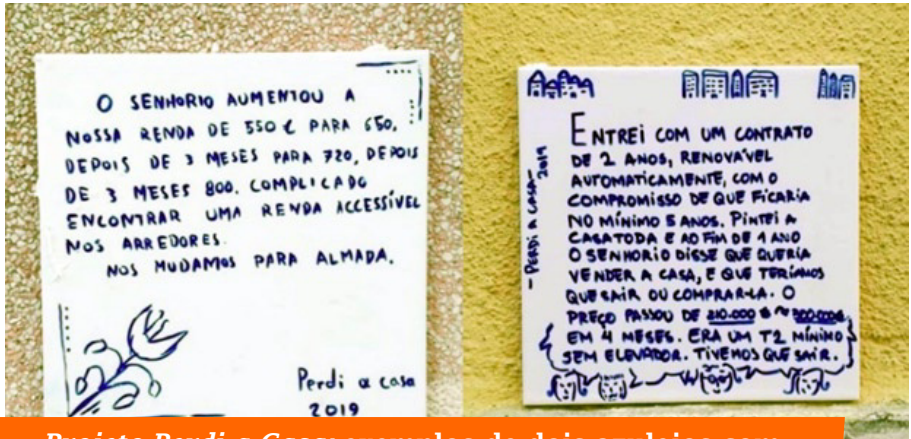 O SENHORIO AUMENTOU A
NOSSA RENDA DE 550 € PARA 650,
DEPOIS DE 3 MESES PARA 720, DEPOIS
DE 3 MESES 800. COMPLICADO
ENCONTRAR UMA RENDA ACCESSÍVEL
NOS ARREDORES.
NOS MUDAMOS PARA ALMADA.
Perdi a casa
2019
- PERDI A CASA -
2019
ENTREI COM UM CONTRATO
DE 2 ANOS, RENOVÁVEL
AUTOMATICAMENTE, COM O
COMPROMISSO DE QUE FICARIA
NO MÍNIMO 5 ANOS. PINTEI A
CASA TODA E AO FIM DE 1 ANO
O SENHORIO DISSE QUE QUERIA
VENDER A CASA, E QUE TERÍAMOS
QUE SAIR OU COMPRAR-LA. O
PREÇO PASSOU DE 210.000
EM 4 MESES. ERA UM T2 MÍNIMO
SEM ELEVADOR. TIVEMOS QUE SAIR.